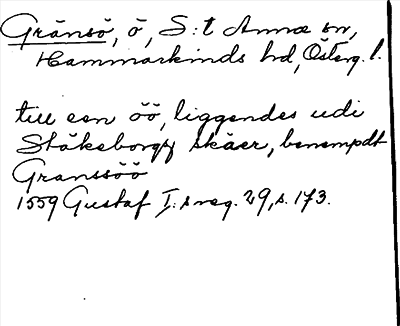 Gränsö, ö, S:t Annæ sn,
Hammarkinds hd, Österg. l.
till een öö, liggendes udi
Stäkeborgs skäer, benempdt
Granssöö
1559 Gustaf I:s reg. 29, s. 173.